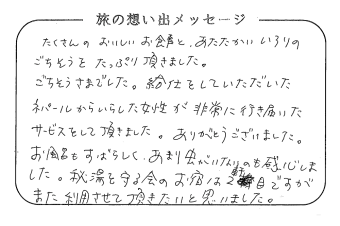 旅の想い出メッセージ
たくさんの おいしい お食事と、あたたかい いろりの
ごちそうを たっぷり 頂きました。
ごちそうさまでした。給仕をしていただいた
ネパールからいらした女性が 非常に行き届いた
サービスをして頂きました。ありがとうございました。
お風呂もすばらしく、あまり虫がいないのも感心しま
した。秘湯を守る会のお宿は2軒目ですが
また 利用させて頂きたいと思いました。